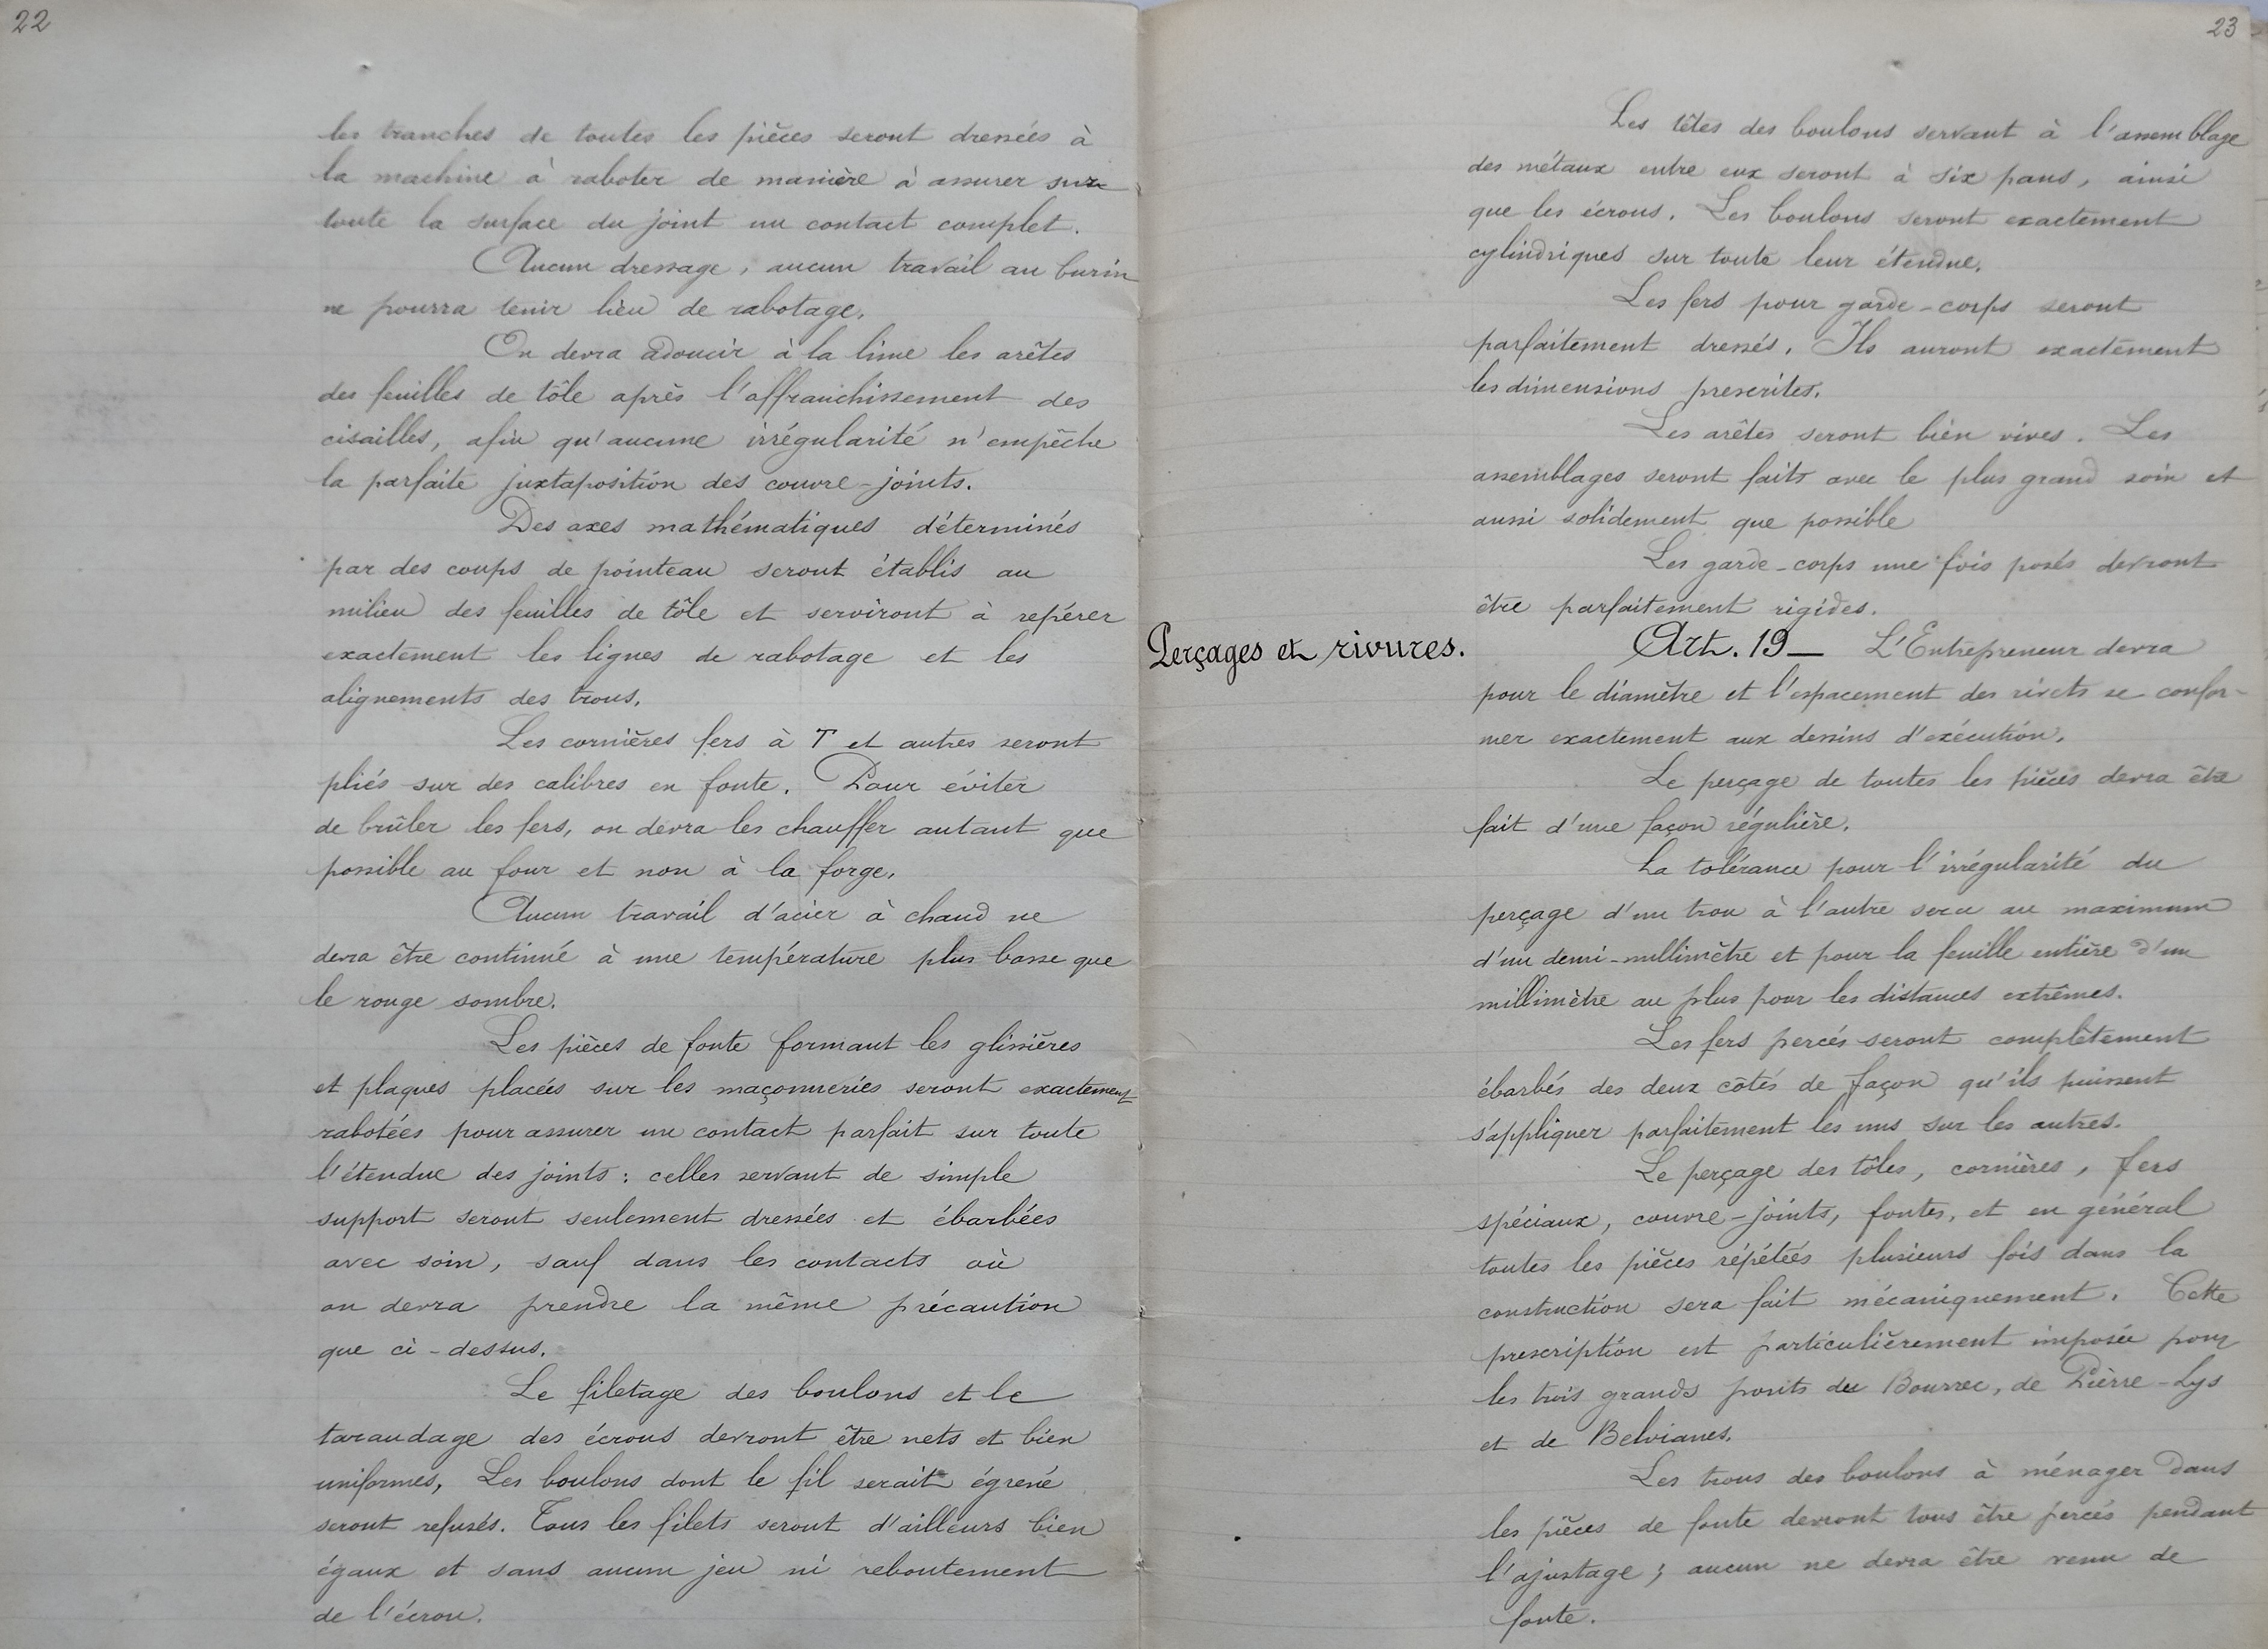 22
les tranches de toutes les pièces seront dressées à
la machine à raboter de manière à assurer sur
toute la surface du joint un contact complet.
Aucun dressage, aucun travail au burin
ne pourra tenir lieu de rabotage.
On devra adoucir à la lime les arêtes
des feuilles de tôle après l'affranchissement des
cisailles, afin qu'aucune irrégularité n'empêche
la parfaite juxtaposition des couvre-joints.
Des axes mathématiques déterminés
par des coups de pointeau seront établis au
milieu des feuilles de tôle et serviront à repérer
exactement les lignes de rabotage et les
alignements des trous.
Les cornières fers à T et autres seront
pliés sur des calibres en fonte. Pour éviter
de brûler les fers, on devra les chauffer autant que
possible au four et non à la forge.
Aucun travail d'acier à chaud ne
devra être continué à une température plus basse que
le rouge sombre.
Les pièces de fonte formant les glissières
et plaques placées sur les maçonneries seront exactement
rabotées pour assurer un contact parfait sur toute
l'étendue des joints : celles servant de simple
support seront seulement dressées et ébarbées
avec soin, sauf dans les contacts où
on devra prendre la même précaution
que ci-dessus.
Le filetage des boulons et le
taraudage des écrous devront être nets et bien
uniformes. Les boulons dont le fil serait égrené
seront refusés. Tous les filets seront d'ailleurs bien
égaux et sans aucun jeu ni reboutement
de l'écrou.
23
Les têtes des boulons servant à l'assemblage
des métaux entre eux seront à six pans, ainsi
que les écrous. Les boulons seront exactement
cylindriques sur toute leur étendue.
Les fers pour garde-corps seront
parfaitement dressés. Ils auront exactement
les dimensions prescrites.
Les arêtes seront bien vives. Les
assemblages seront faits avec le plus grand soin et
aussi solidement que possible
Les garde-corps une fois posés devront
être parfaitement rigides.
Perçages et rivures.
Art. 19 — L'Entrepreneur devra
pour le diamètre et l'espacement des rivets se confor-
mer exactement aux dessins d'exécution.
Le perçage de toutes les pièces devra être
fait d'une façon régulière.
La tolérance pour l'irrégularité du
perçage d'un trou à l'autre sera au maximum
d'un demi-millimètre et pour la feuille entière d'un
millimètre au plus pour les distances extrêmes.
Les fers percés seront complètement
ébarbés des deux côtés de façon qu'ils puissent
s'appliquer parfaitement les uns sur les autres.
Le perçage des tôles, cornières, fers
spéciaux, couvre-joints, fontes, et en général
toutes les pièces répétées plusieurs fois dans la
construction sera fait mécaniquement. Cette
prescription est particulièrement imposée pour
les trois grands ponts du Bourrec, de Pierre-Lys
et de Belvianes.
Les trous des boulons à ménager dans
les pièces de fonte devront tous être percés pendant
l'ajustage ; aucun ne devra être venu de
fonte.